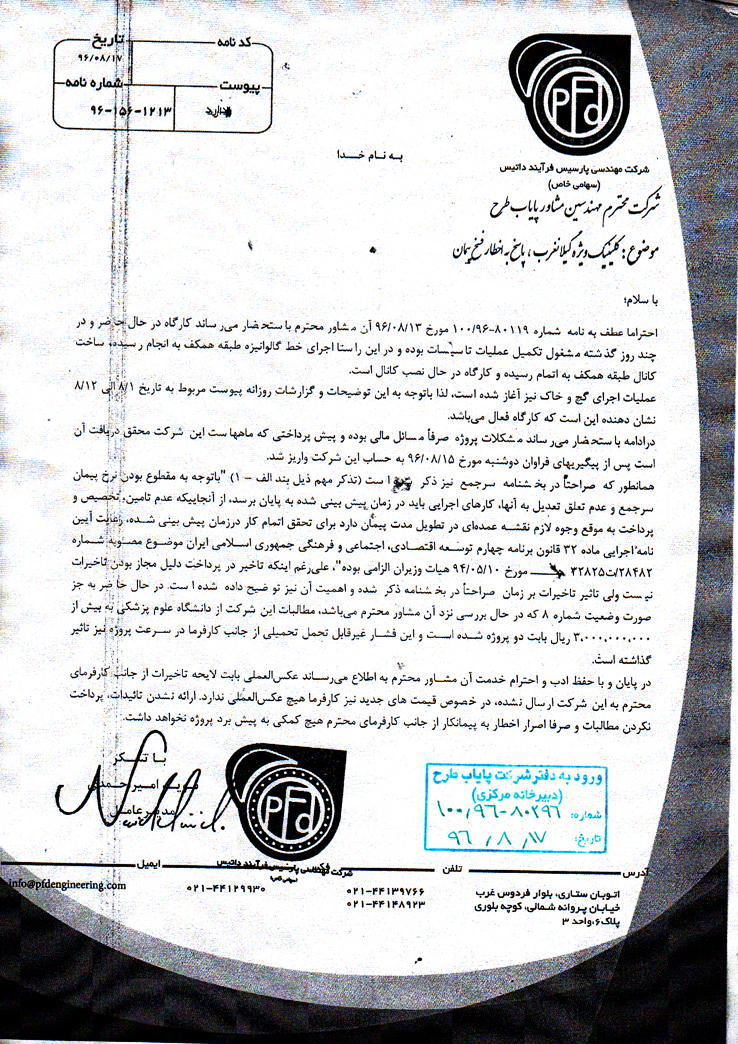 کد نامه
تاریخ
۹۶/۰۸/۱۷
پیوست
شماره نامه
دارد
۹۶-۱۵۶-۱۲۱۳
PFd
شرکت مهندسی پارسیس فرآیند داتیس
(سهامی خاص)
به نام خدا
شرکت محترم مهندسین مشاور پایاب طرح
موضوع: کلینیک ویژه گیلانغرب، پاسخ به اخطار فسخ پیمان
با سلام؛
احتراما عطف به نامه شماره ۸۰۱۱۹-۱۰۰/۹۶ مورخ ۹۶/۰۸/۱۳ آن مشاور محترم باستحضار می‌رساند کارگاه در حال حاضر و در
چند روز گذشته مشغول تکمیل عملیات تاسیسات بوده و در این راستا اجرای خط گالوانیزه طبقه همکف به انجام رسیده، ساخت
کانال طبقه همکف به اتمام رسیده و کارگاه در حال نصب کانال است.
عملیات اجرای گچ و خاک نیز آغاز شده است، لذا باتوجه به این توضیحات و گزارشات روزانه پیوست مربوط به تاریخ ۸/۱ الی ۸/۱۲
نشان دهنده این است که کارگاه فعال می‌باشد.
درادامه باستحضار می‌رساند مشکلات پروژه صرفاً مسائل مالی بوده و پیش پرداختی که ماههاست این شرکت محقق دریافت آن
است پس از پیگیریهای فراوان دوشنبه مورخ ۹۶/۰۸/۱۵ به حساب این شرکت واریز شد.
همانطور که صراحتاً در بخشنامه سرجمع نیز ذکر است (تذکر مهم ذیل بند الف - ۱) "باتوجه به مقطوع بودن نرخ پیمان
سرجمع و عدم تعلق تعدیل به آنها، کارهای اجرایی باید در زمان پیش بینی شده به پایان برسد، از آنجاییکه عدم تامین، تخصیص و
پرداخت به موقع وجوه لازم نقشه عمده‌ای در تطویل مدت پیمان دارد برای تحقق اتمام کار درزمان پیش بینی شده، رعایت آیین
نامه اجرایی ماده ۳۲ قانون برنامه چهارم توسعه اقتصادی، اجتماعی و فرهنگی جمهوری اسلامی ایران موضوع مصوبه شماره
۲۸۴۸۲/ت۳۲۸۲۵ مورخ ۹۴/۰۵/۱۰ هیات وزیران الزامی بوده"، علی‌رغم اینکه تاخیر در پرداخت دلیل مجاز بودن تاخیرات
نیست ولی تاثیر تاخیرات بر زمان صراحتاً در بخشنامه ذکر شده و اهمیت آن نیز توضیح داده شده است. در حال حاضر به جز
صورت وضعیت شماره ۸ که در حال بررسی نزد آن مشاور محترم می‌باشد، مطالبات این شرکت از دانشگاه علوم پزشکی به بیش از
۳,۰۰۰,۰۰۰,۰۰۰ ریال بابت دو پروژه شده است و این فشار غیرقابل تحمل تحمیلی از جانب کارفرما در سرعت پروژه نیز تاثیر
گذاشته است.
در پایان و با حفظ ادب و احترام خدمت آن مشاور محترم به اطلاع می‌رساند عکس‌العملی بابت لایحه تاخیرات از جانب کارفرمای
محترم به این شرکت ارسال نشده، در خصوص قیمت های جدید نیز کارفرما هیچ عکس‌العملی ندارد. ارائه نشدن تائیدات، پرداخت
نکردن مطالبات و صرفا اصرار اخطار به پیمانکار از جانب کارفرمای محترم هیچ کمکی به پیش برد پروژه نخواهد داشت.
با تشکر
امیر احمدی
مدیر عامل
PFd
شرکت مهندسی پارسیس فرآیند داتیس
ورود به دفتر شرکت پایاب طرح
(دبیرخانه مرکزی)
شماره: ۱۰۰/۹۶-۸۰۲۹۶
تاریخ: ۹۶/۸/۱۷
آدرس
تلفن
ایمیل
اتوبان ستاری، بلوار فردوس غرب
خیابان پروانه شمالی، کوچه بلوری
پلاک۶،واحد ۳
۰۲۱-۴۴۱۳۹۷۶۶
۰۲۱-۴۴۱۴۸۹۲۳
۰۲۱-۴۴۱۲۹۹۳۰
info@pfdengineering.com